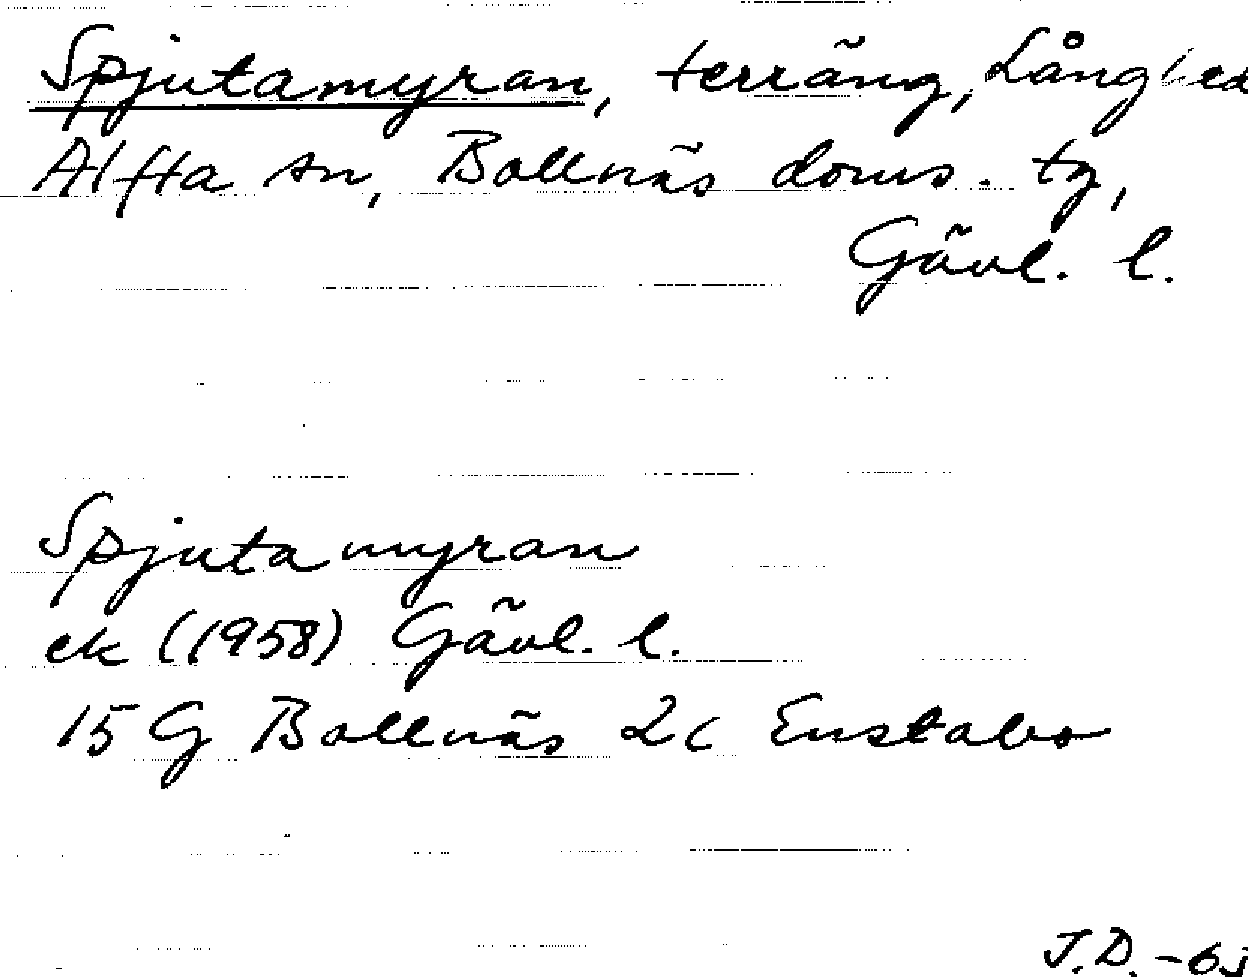 Spjutamyran, terräng, Långhed
Alfta sn, Bollnäs doms. tg,
Gävl. l.
Spjutamyran
ek (1958) Gävl. l.
15 G Bollnäs 2c Enstabo
J.D. -65